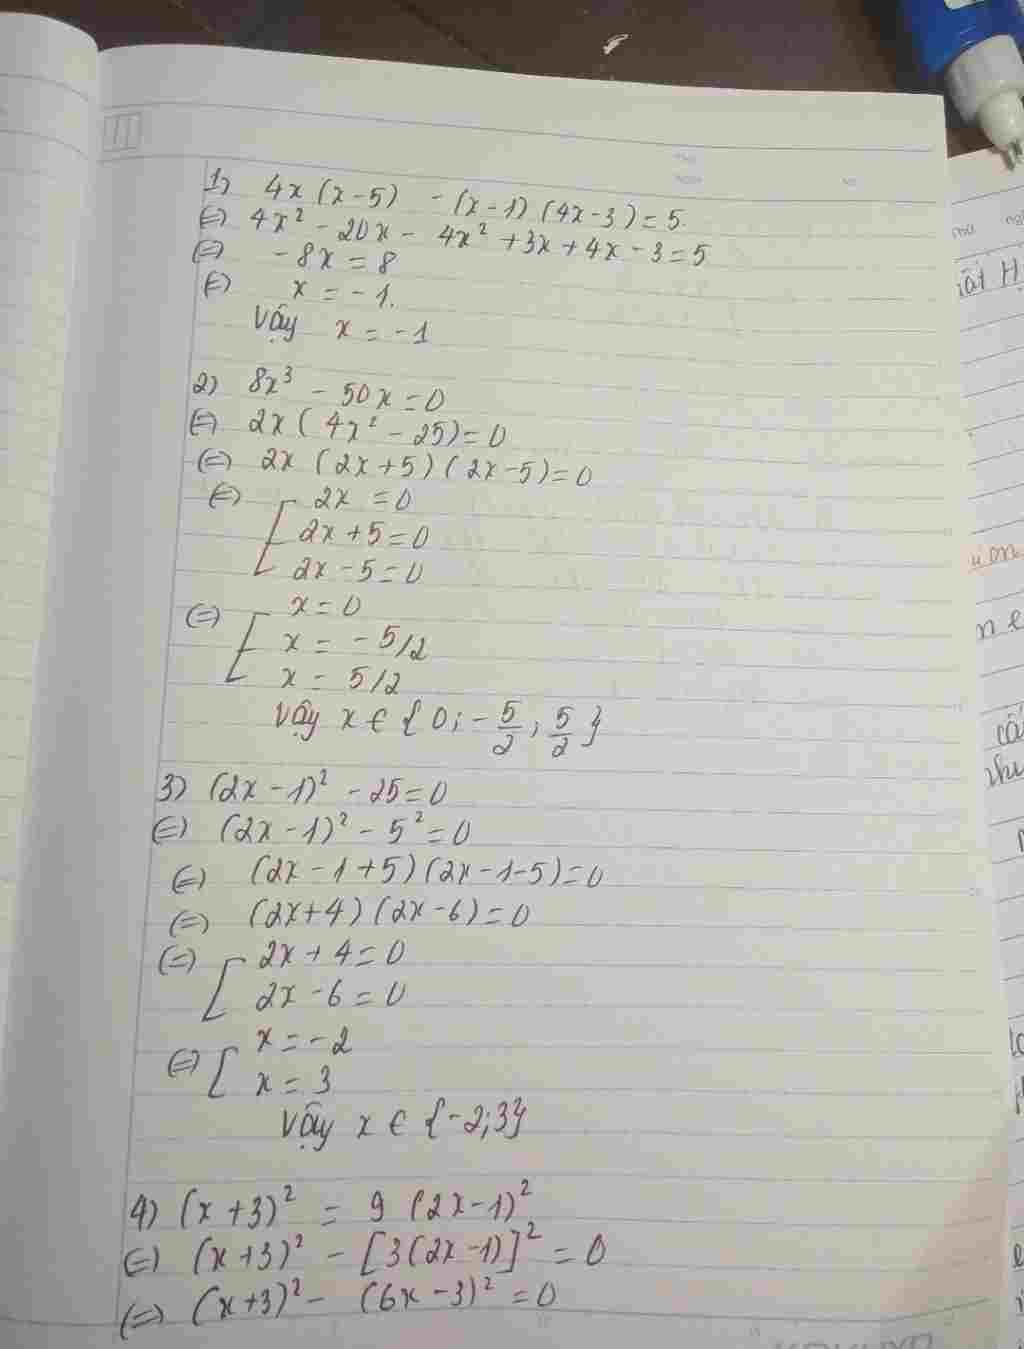 1) 4x(x-5) - (x-1)(4x-3)=5.
(=) 4x² - 20x - 4x² + 3x + 4x - 3 = 5
(=) -8x = 8
(=) x = -1.
Vậy x = -1
2) 8x³ - 50x = 0
(=) 2x(4x² - 25) = 0
(=) 2x(2x+5)(2x-5)=0
(=) [ 2x = 0
2x + 5 = 0
2x - 5 = 0
(=) [ x = 0
x = -5/2
x = 5/2
Vậy x ∈ {0; -5/2; 5/2}
3) (2x-1)² - 25 = 0
(=) (2x-1)² - 5² = 0
(=) (2x-1+5)(2x-1-5)=0
(=) (2x+4)(2x-6)=0
(=) [ 2x + 4 = 0
2x - 6 = 0
(=) [ x = -2
x = 3
Vậy x ∈ {-2; 3}
4) (x+3)² = 9(2x-1)²
(=) (x+3)² - [3(2x-1)]² = 0
(=) (x+3)² - (6x-3)² = 0